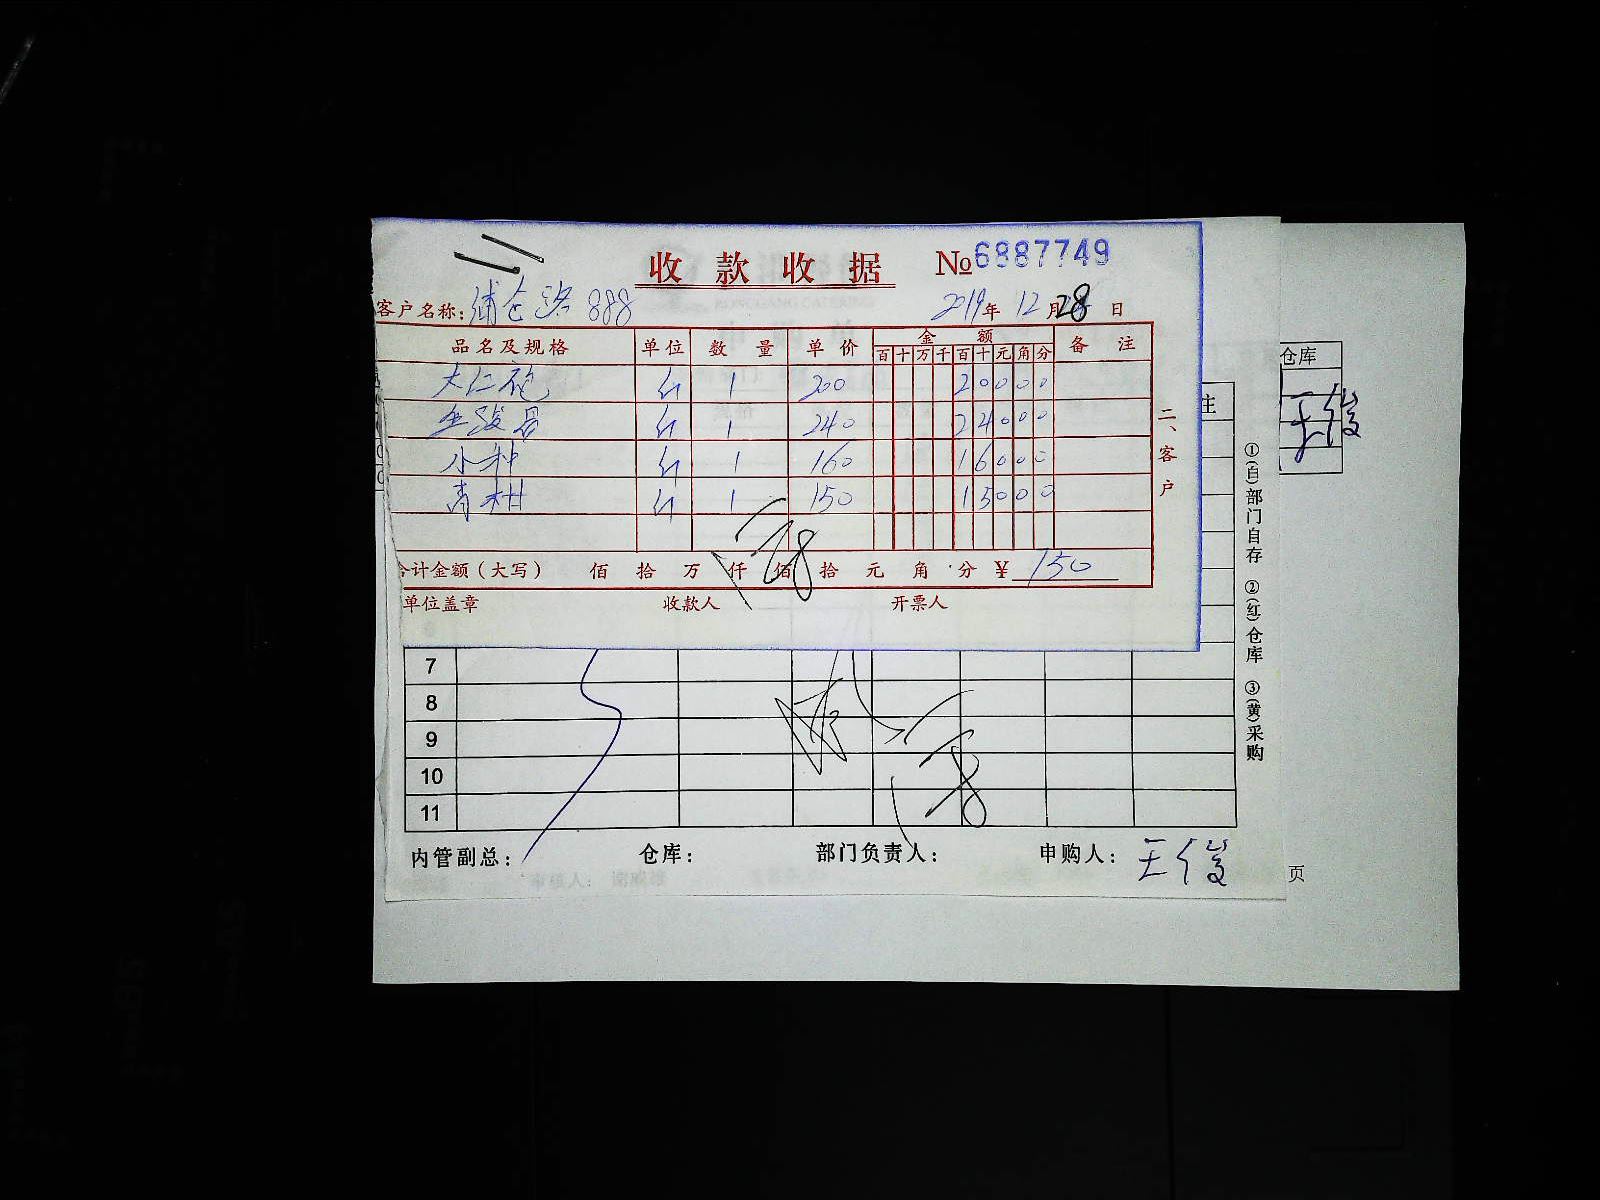 收款收据 №6887749
客户名称: 888 2019年12月28日
品名及规格 单位 数量 单价 金额 备注
百 十 万 千 百 十 元 角 分
大红袍 斤 1 200 20000
金骏眉 斤 1 240 24000
小种 斤 1 160 16000
青柑 斤 1 150 15000
合计金额(大写) 佰 拾 万 仟 佰 拾 元 角 分 ¥ 150
单位盖章 收款人 开票人
二、客户
7
8
9
10
11
内管副总: 仓库: 部门负责人: 申购人: 王俊
注
①(白)部门自存 ②(红)仓库 ③(黄)采购
仓库
王俊
页